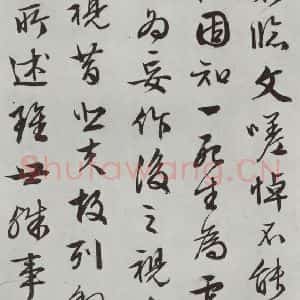 臨文嗟悼不能
固知一死生為虛
為妄作後之視
視昔悲夫故列
所述雖世殊事
Shufawang.CN